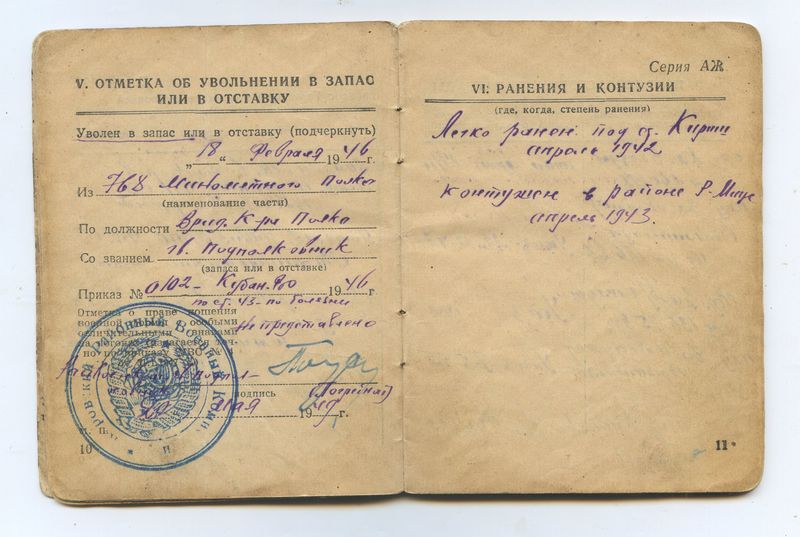 V. ОТМЕТКА ОБ УВОЛЬНЕНИИ В ЗАПАС
ИЛИ В ОТСТАВКУ
Уволен в запас или в отставку (подчеркнуть)
„18“ Февраля 1946 г.
Из 768 Минометного Полка
(наименование части)
По должности Врид. К-ра Полка
Со званием гв. Подполковник
(запаса или в отставке)
Приказ № 0102 - Кубан. 1946
по ст. 43 - по болезни
Отметка о праве ношения
военной с особыми
отличительными знаками
на погонах
Не представлено
подпись
(Погребной)
мая 1949 г.
М. П.
10
Серия АЖ
VI: РАНЕНИЯ И КОНТУЗИИ
(где, когда, степень ранения)
Легко ранен под ст.
апрель 1942
контужен в районе
апрель 1943.
11